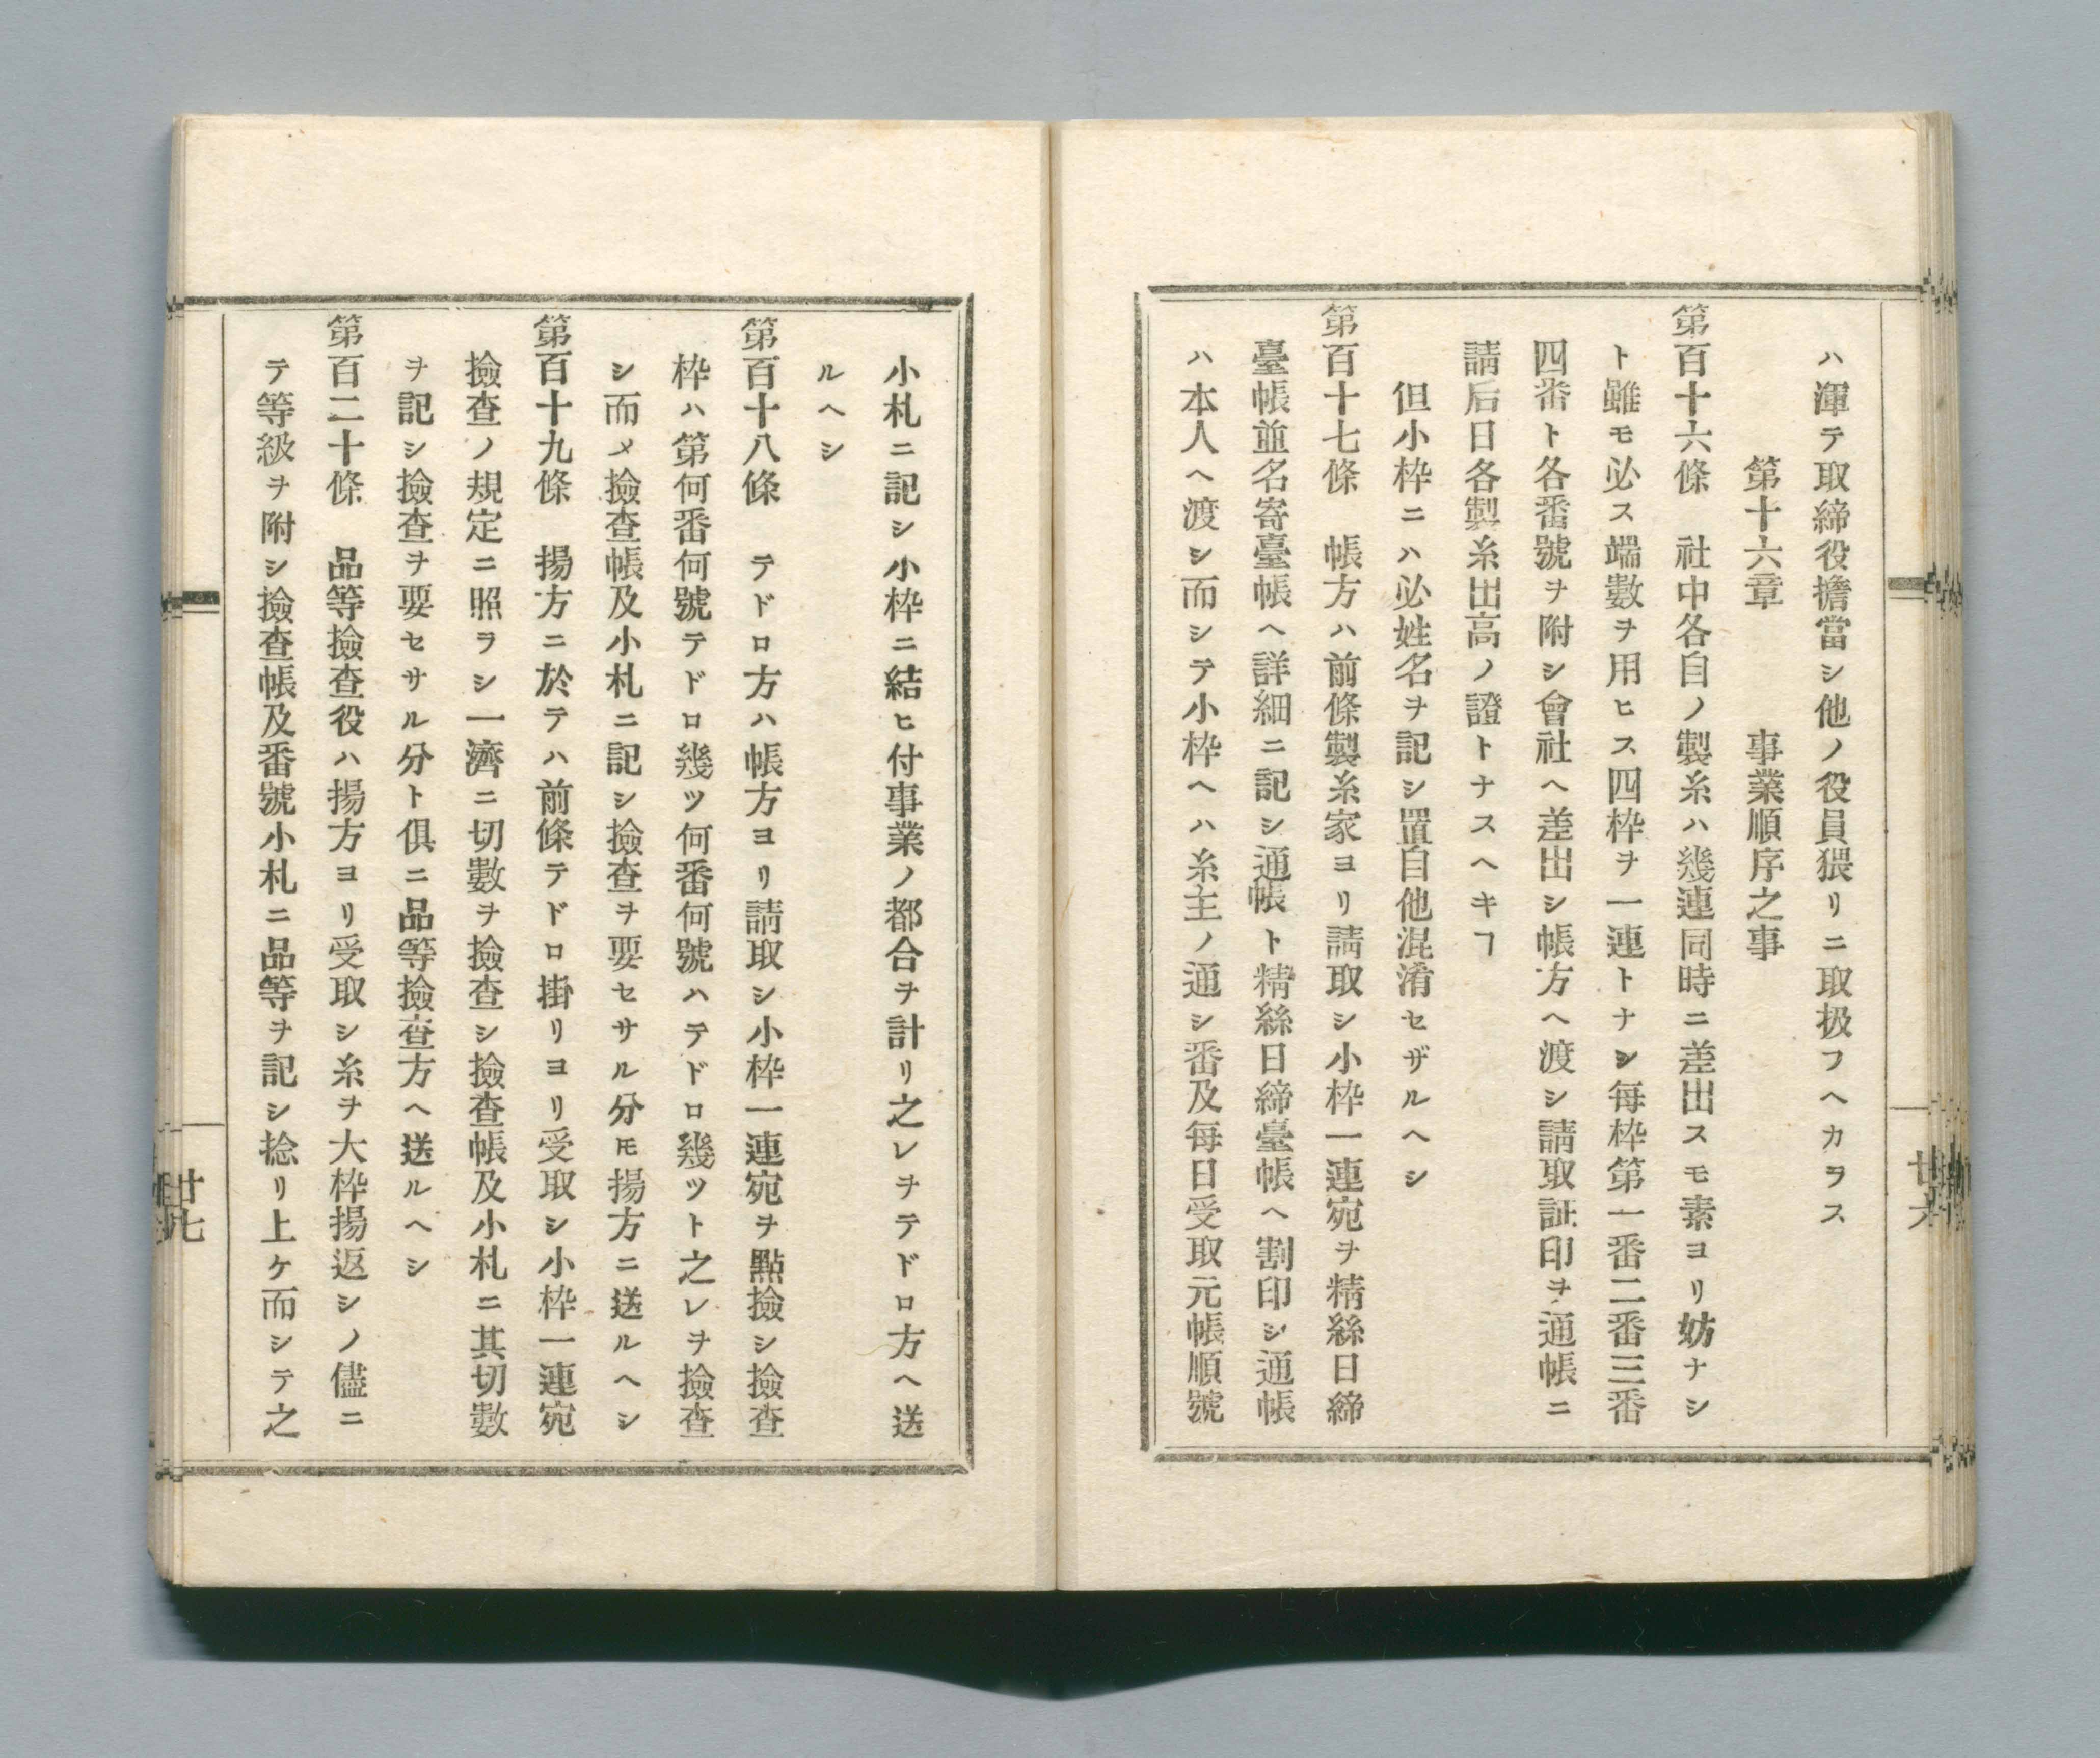 ハ渾テ取締役擔當シ他ノ役員猥リニ取扱フヘカラス
第十六章　事業順序之事
第百十六條　社中各自ノ製糸ハ幾連同時ニ差出スモ素ヨリ妨ナシ
ト雖モ必ス端數ヲ用ヒス四枠ヲ一連トナシ每枠第一番二番三番
四番ト各番號ヲ附シ會社ヘ差出シ帳方ヘ渡シ請取証印ヲ通帳ニ
請后日各製糸出高ノ證トナスヘキヿ
但小枠ニハ必姓名ヲ記シ置自他混淆セザルヘシ
第百十七條　帳方ハ前條製糸家ヨリ請取シ小枠一連宛ヲ精絲日締
臺帳並名寄臺帳ヘ詳細ニ記シ通帳ト精絲日締臺帳ヘ割印シ通帳
ハ本人ヘ渡シ而シテ小枠ヘハ糸主ノ通シ番及每日受取元帳順號
廿六
小札ニ記シ小枠ニ結ヒ付事業ノ都合ヲ計リ之レヲテドロ方ヘ送
ルヘシ
第百十八條　テドロ方ハ帳方ヨリ請取シ小枠一連宛ヲ點撿シ撿查
枠ハ第何番何號テドロ幾ツ何番何號ハテドロ幾ツト之レヲ撿查
シ而メ撿查帳及小札ニ記シ撿查ヲ要セサル分モ揚方ニ送ルヘシ
第百十九條　揚方ニ於テハ前條テドロ掛リヨリ受取シ小枠一連宛
撿查ノ規定ニ照ラシ一濟ニ切數ヲ撿查シ撿查帳及小札ニ其切數
ヲ記シ撿查ヲ要セサル分ト俱ニ品等撿查方ヘ送ルヘシ
第百二十條　品等撿查役ハ揚方ヨリ受取シ糸ヲ大枠揚返シノ儘ニ
テ等級ヲ附シ撿查帳及番號小札ニ品等ヲ記シ捻リ上ケ而シテ之
廿七